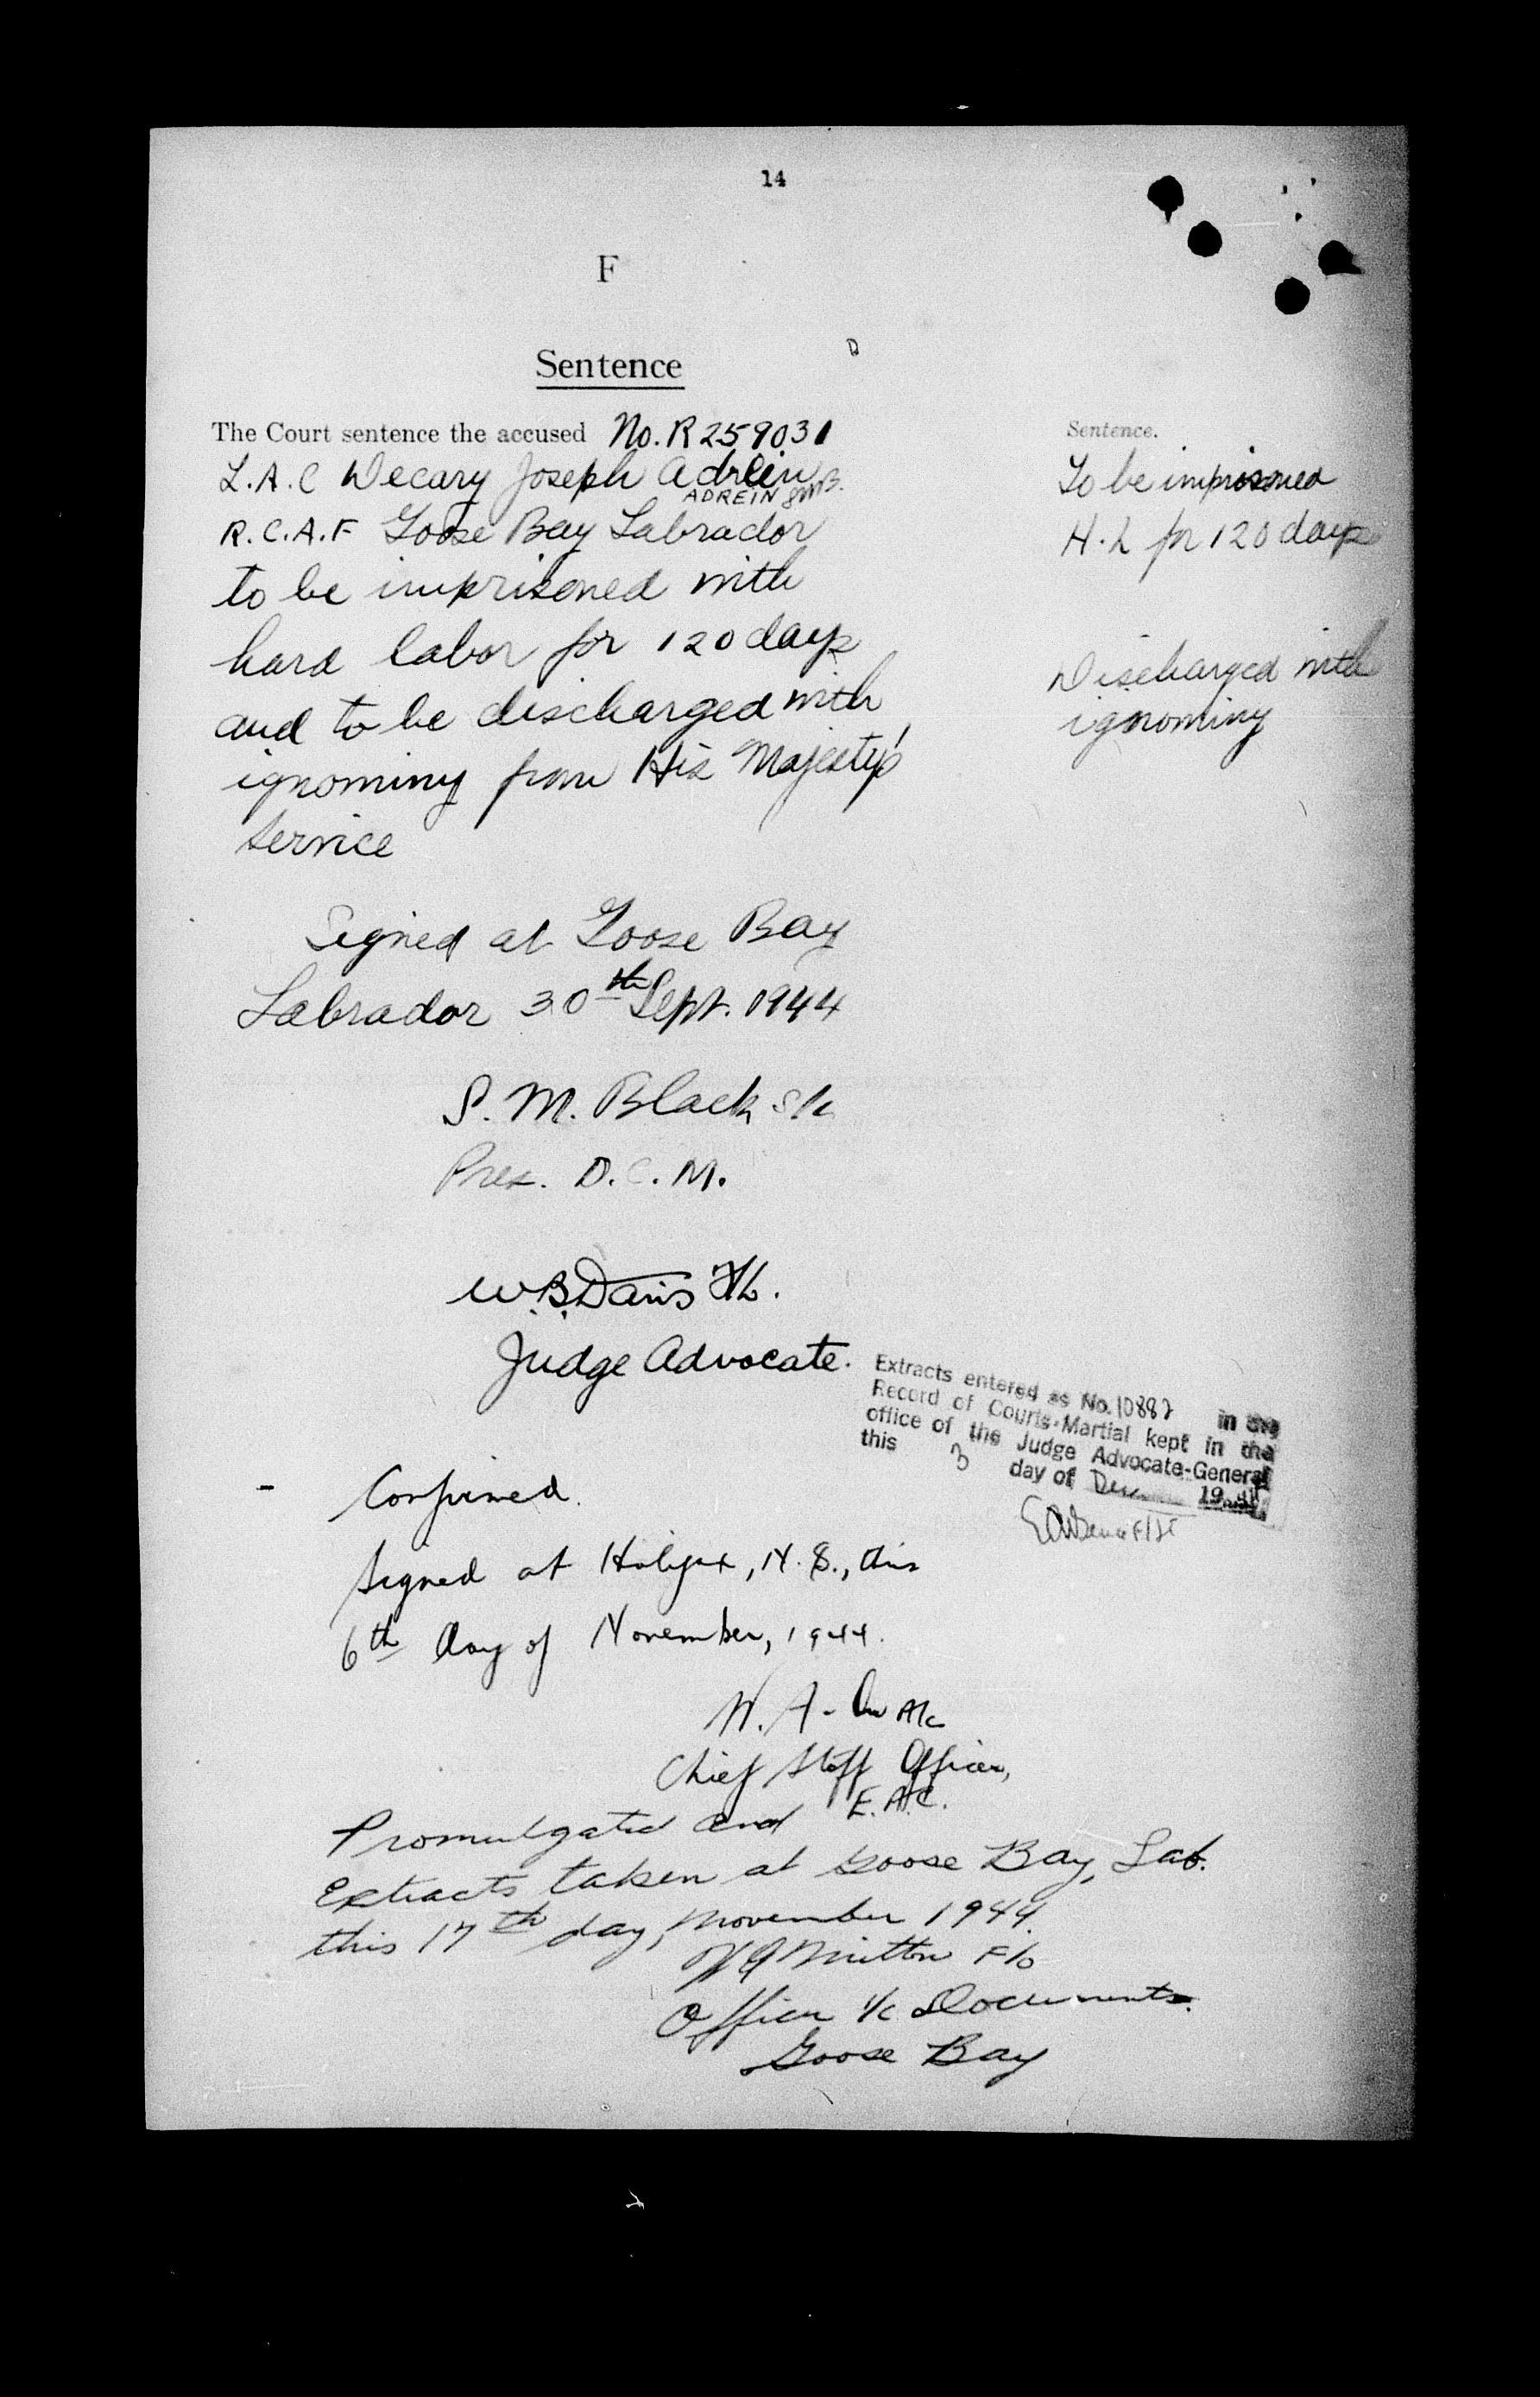 14
F
Sentence
The Court sentence the accused No. R 259031
L.A.C Decary Joseph Adrein
ADREIN SMB.
R.C.A.F Goose Bay Labrador
to be imprisoned with
hard labor for 120 days
and to be discharged with
ignominy from His Majesty's
Service
Sentence.
To be imprisoned
H.L for 120 days
Discharged with
ignominy
Signed at Goose Bay
Labrador 30th Sept. 1944
S. M. Black S/L
Pres. D.C.M.
W.B. Davis F/L.
Judge Advocate.
Extracts entered as No. 10882 in the
Record of Courts-Martial kept in the
office of the Judge Advocate-General
this 3 day of 1944
Confirmed.
Signed at Halifax, N.S., this
6th day of November, 1944.
W. A. A/C
Chief Staff Officer,
E.A.C.
Promulgated and
Extracts taken at Goose Bay, Lab.
this 17th day, November 1944.
Mutton F/O
Officer i/c Documents.
Goose Bay